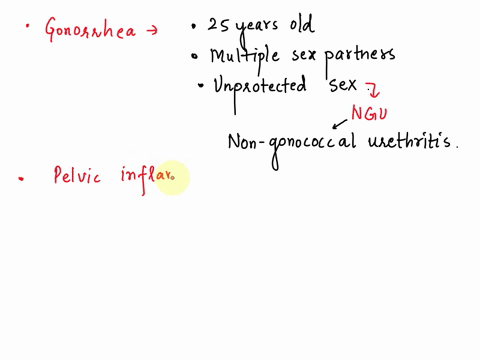 • Gonorrhea → • 25 years old
• Multiple sex partners
• Unprotected sex
NGU
Non-gonococcal urethritis.
• Pelvic inflam